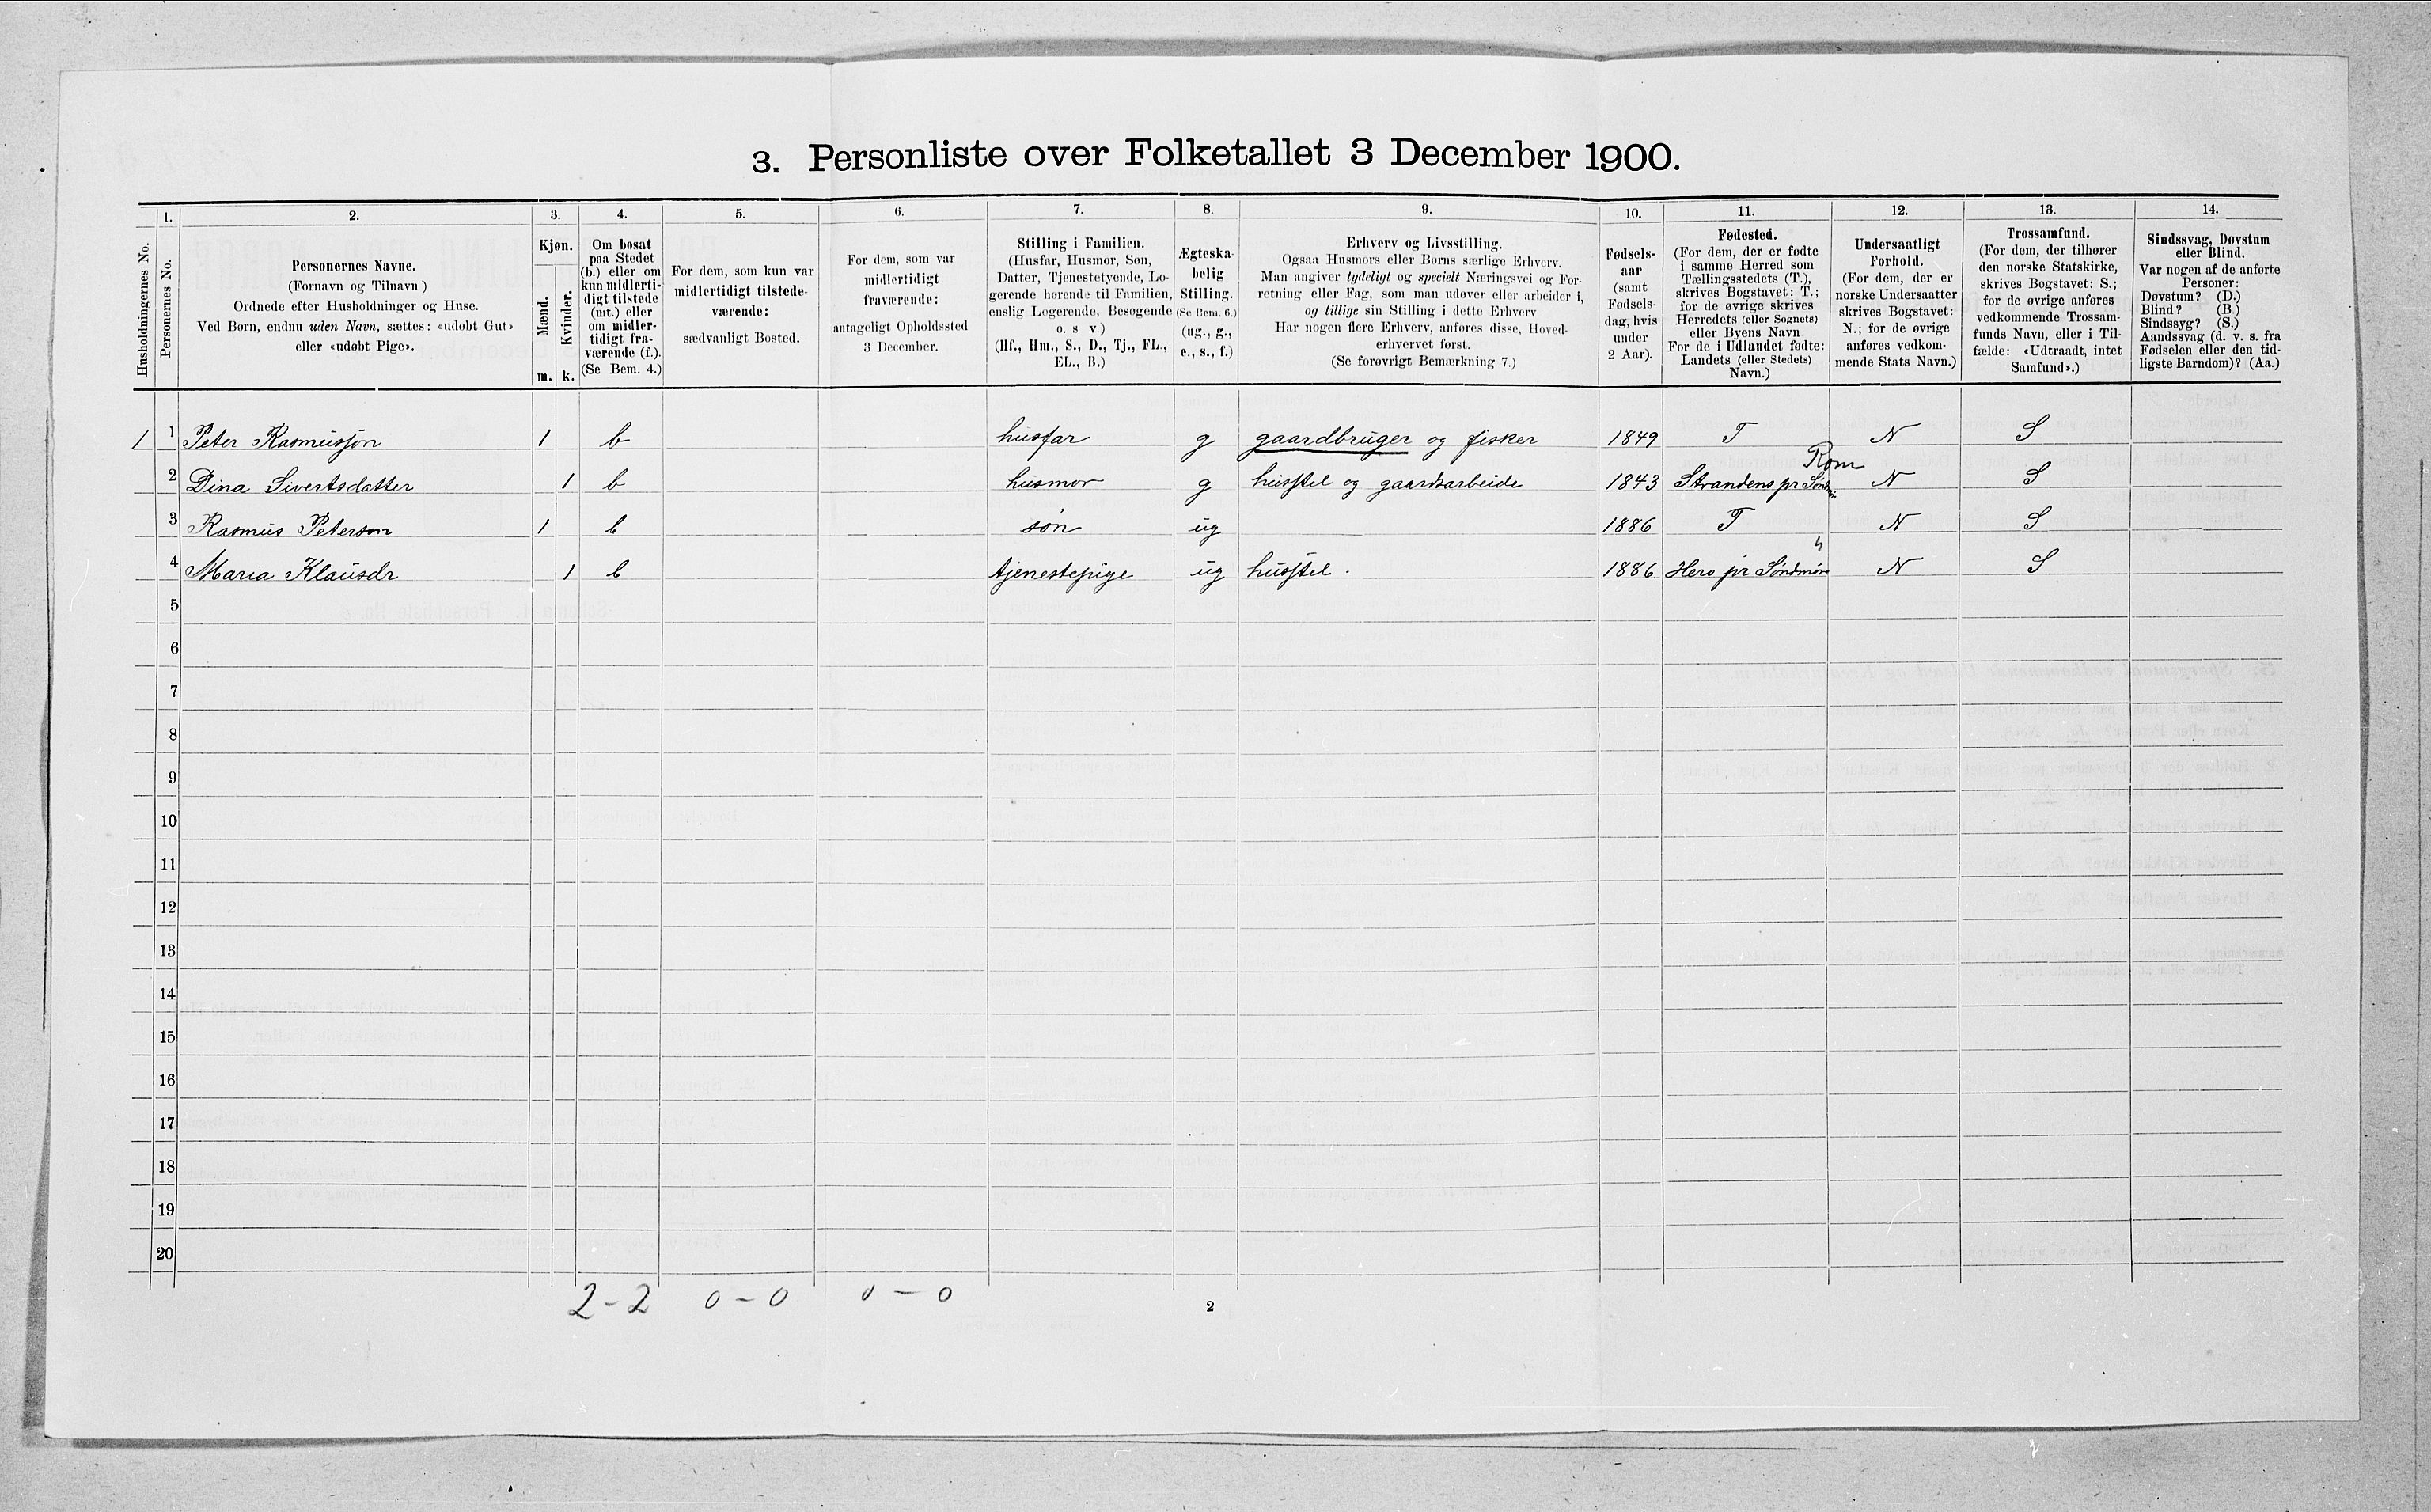 3. Personliste over Folketallet 3 December 1900.
Husholdningernes No.
1.
Personernes No.
2.
Personernes Navne.
(Fornavn og Tilnavn)
Ordnede efter Husholdninger og Huse.
Ved Børn, endnu uden Navn, sættes: «udøbt Gut»
eller «udøbt Pige».
3.
Kjøn.
Mænd.
Kvinder.
m. k.
4.
Om bosat
paa Stedet
(b.) eller om
kun midlerti-
digt tilstede
(mt.) eller
om midler-
tidigt fra-
værende (f.).
(Se Bem. 4.)
5.
For dem, som kun var
midlertidigt tilstede-
værende:
sædvanligt Bosted.
6.
For dem, som var
midlertidigt
fraværende:
antageligt Opholdssted
3 December.
7.
Stilling i Familien.
(Husfar, Husmor, Søn,
Datter, Tjenestetyende, Lo-
gerende hørende til Familien,
enslig Logerende, Besøgende
o. s v.)
(Hf., Hm., S., D., Tj., FL.,
EL., B.)
8.
Ægteska-
belig
Stilling.
(Se Bem. 6.)
(ug., g.,
e., s., f.)
9.
Erhverv og Livsstilling.
Ogsaa Husmors eller Børns særlige Erhverv.
Man angiver tydeligt og specielt Næringsvei og For-
retning eller Fag, som man udøver eller arbeider i,
og tillige sin Stilling i dette Erhverv
Har nogen flere Erhverv, anføres disse, Hoved-
erhvervet først.
(Se forøvrigt Bemærkning 7.)
10.
Fødsels-
aar
(samt
Fødsels-
dag, hvis
under
2 Aar).
11.
Fødested.
(For dem, der er fødte
i samme Herred som
Tællingsstedets (T.),
skrives Bogstavet: T.;
for de øvrige skrives
Herredets (eller Sognets)
eller Byens Navn
For de i Udlandet fødte:
Landets (eller Stedets)
Navn.)
12.
Undersaatligt
Forhold.
(For dem, der er
norske Undersaatter
skrives Bogstavet:
N.; for de øvrige
anføres vedkom-
mende Stats Navn.)
13.
Trossamfund.
(For dem, der tilhører
den norske Statskirke,
skrives Bogstavet: S.;
for de øvrige anføres
vedkommende Trossam-
funds Navn, eller i Til-
fælde: «Udtraadt, intet
Samfund».)
14.
Sindssvag, Døvstum
eller Blind.
Var nogen af de anførte
Personer:
Døvstum? (D.)
Blind? (B.)
Sindssyg? (S.)
Aandssvag (d. v. s. fra
Fødselen eller den tid-
ligste Barndom)? (Aa.)
1 1 Peter Rasmussøn 1 b husfar g gaardbruger og fisker 1849 T N S
Rom
2 Dina Sivertsdatter 1 b husmor g husstel og gaardsarbeide 1843 Strandens pr N S
3 Rasmus Peterson 1 b søn ug 1886 T N S
4 Maria Klausdr 1 b tjenestepige ug husstel. 1886 Hero pr Søndmøre N S
5
6
7
8
9
10
11
12
13
14
15
16
17
18
19
20
2-2 0-0 0-0
2